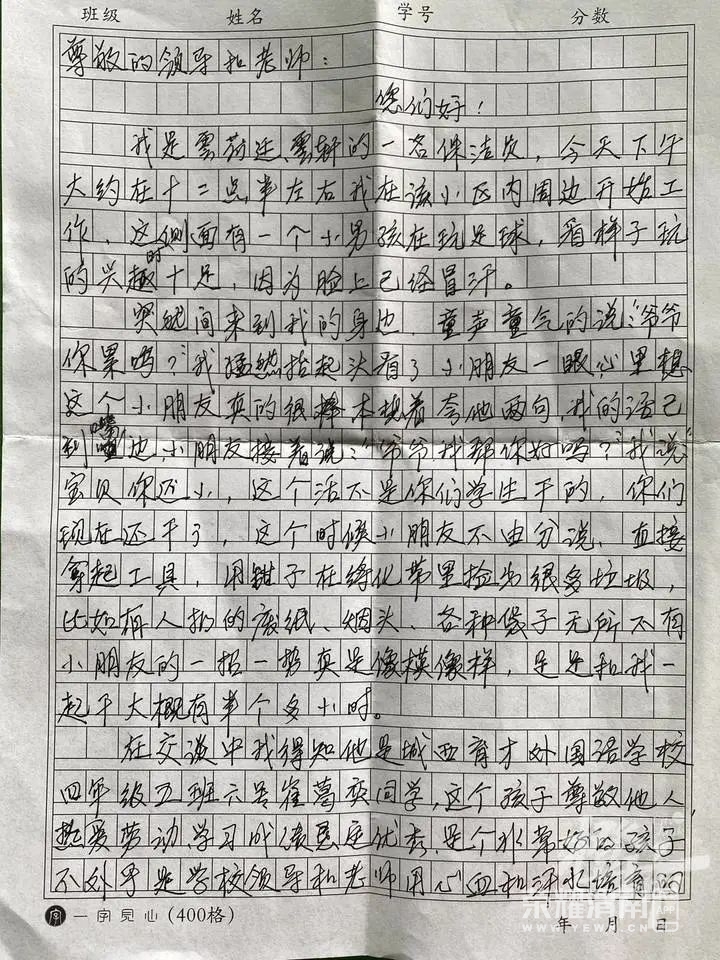 班级 姓名 学号 分数
尊敬的领导和老师：
您们好！
我是云荷廷云轩的一名保洁员，今天下午
大约在十二点半左右我在该小区内周边开始工
作，这时侧面有一个小男孩在玩足球，看样子玩
的兴趣十足，因为脸上已经冒汗。
突然间来到我的身边 童声童气的说：“爷爷
你累吗？”我猛然抬起头看了小朋友一眼心里想
这个小朋友真的很棒本想着夸他两句，我的话已
到嘴边，小朋友接着说：“爷爷我帮你好吗？”我说“
宝贝你还小，这个活不是你们学生干的，你们
现在还干了，这个时候小朋友不由分说，直接
拿起工具，用钳子在绿化带里捡为很多垃圾，
比如有人扔的废纸、烟头、各种袋子无所不有
小朋友的一招一势真是像模像样，足足和我一
起干大概有半个多小时。
在交谈中我得知他是城西育才外国语学校
四年级五班六号崔葛奕同学，这个孩子尊敬他人，
热爱劳动，学习成绩更优秀，是个非常好的孩子
不外乎是学校领导和老师用心血和汗水培育的
一字见心(400格)
年 月 日
荣耀渭南
WWW.YEWN.CN
APP